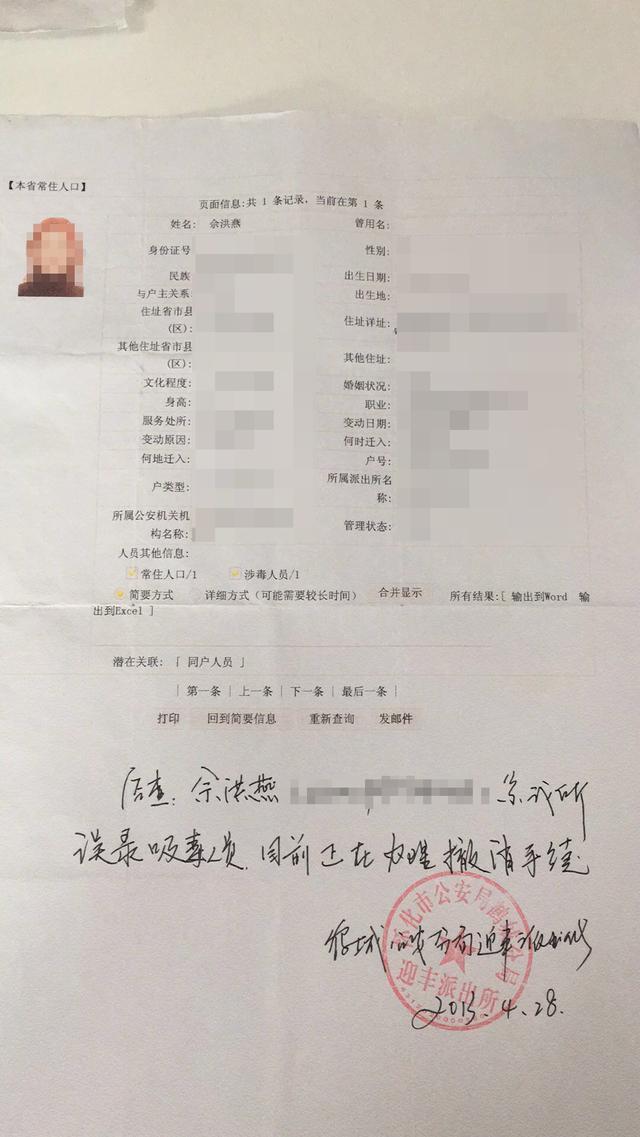 【本省常住人口】
页面信息:共 1 条记录，当前在第 1 条
姓名: 佘洪燕 曾用名:
身份证号 性别:
民族 出生日期:
与户主关系: 出生地:
住址省市县(区): 住址详址:
其他住址省市县(区): 其他住址:
文化程度: 婚姻状况:
身高: 职业:
服务处所: 变动日期:
变动原因: 何时迁入:
何地迁入: 户号:
户类型: 所属派出所名称:
所属公安机关机构名称: 管理状态:
人员其他信息:
常住人口/1 涉毒人员/1
简要方式 详细方式（可能需要较长时间） 合并显示 所有结果:[ 输出到Word 输
出到Excel ]
潜在关联: 「 同户人员 」
| 第一条 | 上一条 | 下一条 | 最后一条 |
打印 回到简要信息 重新查询 发邮件
后查: 佘洪燕 系我所
误录吸毒人员,目前正在办理撤消手续
分局迎丰派出所
化市公安局鹤城分局
迎丰派出所
2013.4.28.